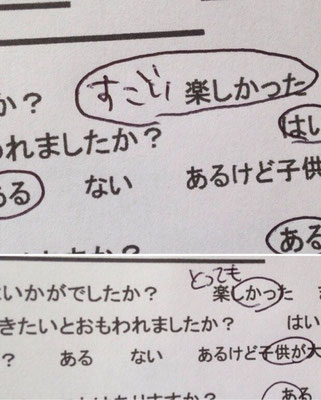 か？ すごい 楽しかった
はい
われましたか？
ある ない あるけど子供
ある
とっても
はいかがでしたか？ 楽しかった
きたいとおもわれましたか？ はい
？ ある ない あるけど子供が大
ある